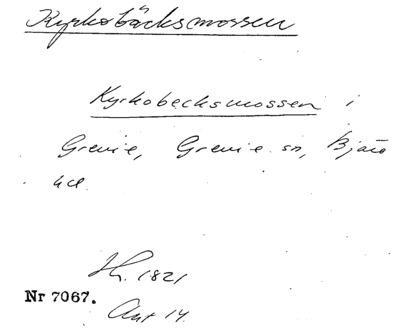 Kyrkobäcksmossen
Kyrkobecksmossen i
Grevie, Grevie sn, Bjäre
hd.
1821
Nr 7067.
Akt 14.